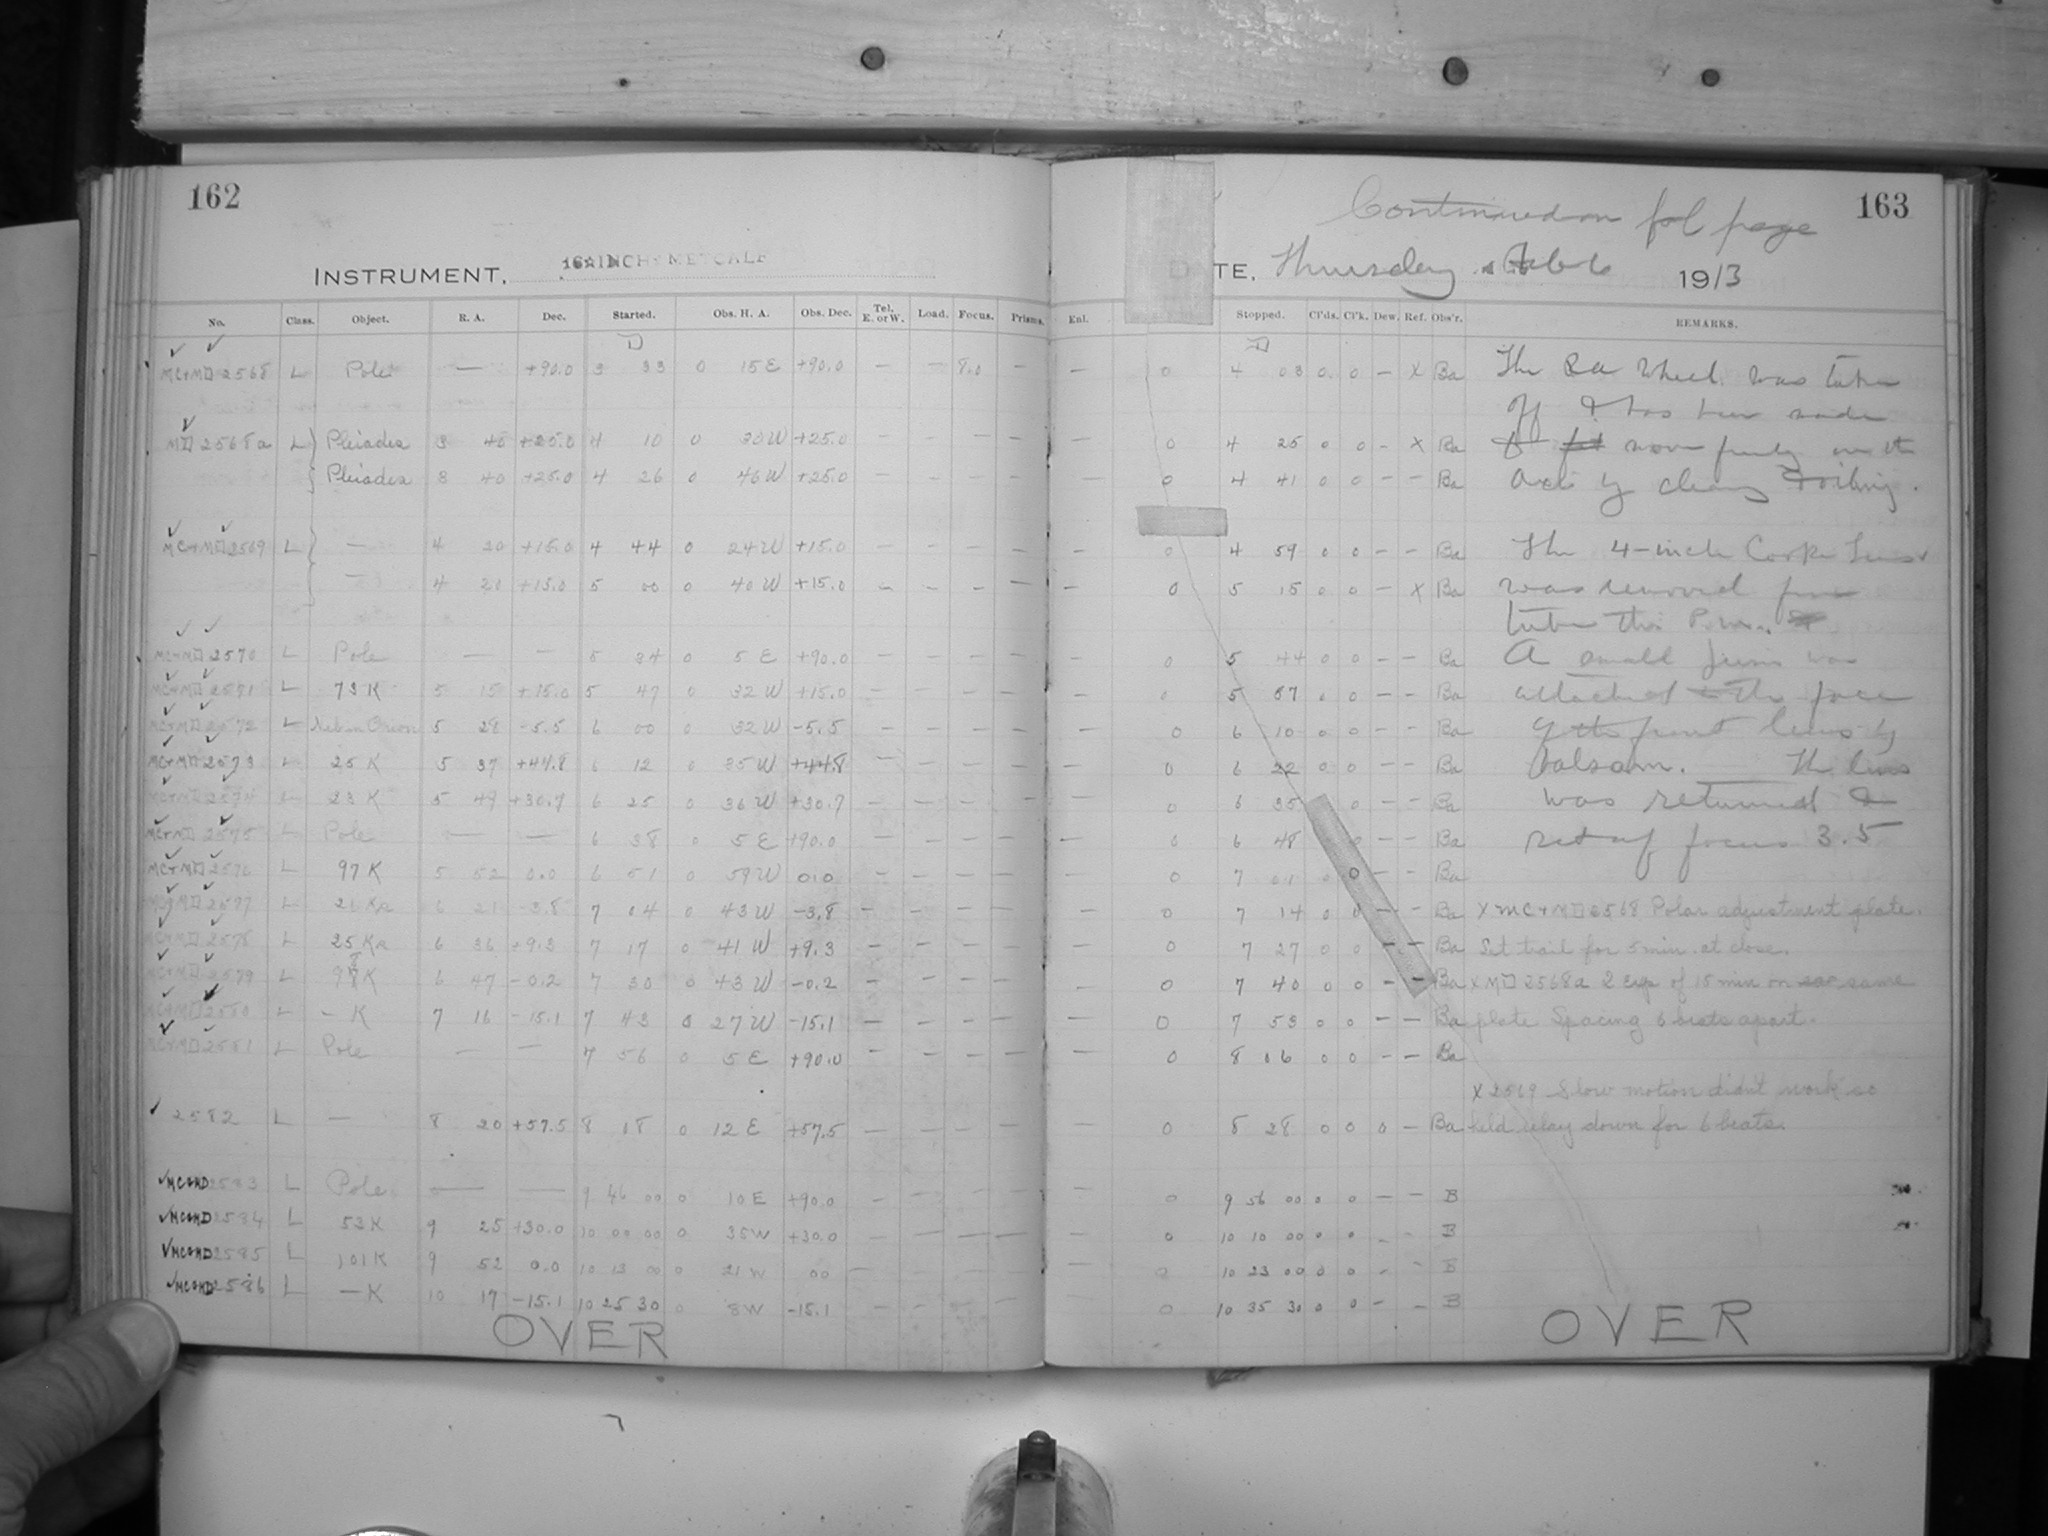 162
INSTRUMENT, 16 INCH METCALF
No. Class. Object. R. A. Dec. Started. Obs. H. A. Obs. Dec. Tel. E. or W. Load. Focus. Prisms.
MC+M□ 2568 L Pole — +90.0 3 33 0 15 E +90.0 — — 8.0 —
M□ 2568a L Pleiades 3 40 +25.0 4 10 0 30 W +25.0 — — — —
Pleiades 3 40 +25.0 4 26 0 46 W +25.0 — — — —
MC+M□ 2569 L — 4 20 +15.0 4 44 0 24 W +15.0 — — — —
— 4 20 +15.0 5 00 0 40 W +15.0 — — — —
MC+M□ 2570 L Pole — — 5 34 0 5 E +90.0 — — — —
MC+M□ 2571 L 73 K 5 15 +15.0 5 47 0 32 W +15.0 — — — —
MC+M□ 2572 L Neb in Orion 5 28 -5.5 6 00 0 32 W -5.5 — — — —
MC+M□ 2573 L 25 K 5 37 +44.8 6 12 0 35 W +44.8 — — — —
MC+M□ 2574 L 23 K 5 49 +30.7 6 25 0 36 W +30.7 — — — —
MC+M□ 2575 L Pole — — 6 38 0 5 E +90.0 — — — —
MC+M□ 2576 L 97 K 5 52 0.0 6 51 0 59 W 0.0 — — — —
MC+M□ 2577 L 21 Ka 6 21 -3.8 7 04 0 43 W -3.8 — — — —
MC+M□ 2578 L 25 Ka 6 36 +9.3 7 17 0 41 W +9.3 — — — —
MC+M□ 2579 L 98 K 6 47 -0.2 7 30 0 43 W -0.2 — — — —
MC+M□ 2580 L - K 7 16 -15.1 7 43 0 27 W -15.1 — — — —
MC+M□ 2581 L Pole — — 7 56 0 5 E +90.0 — — — —
2582 L — 8 20 +57.5 8 18 0 12 E +57.5 — — — —
MC&MD 2583 L Pole — — 9 46 00 0 10 E +90.0 — — — —
MC&MD 2584 L 53 K 9 25 +30.0 10 00 00 0 35 W +30.0 — — — —
MC&MD 2585 L 101 K 9 52 0.0 10 13 00 0 21 W 00 — — — —
MC&MD 2586 L — K 10 17 -15.1 10 25 30 0 8 W -15.1 — — — —
OVER
163
Continued on fol page
DATE, Thursday Feb 6 1913
Enl. Stopped. Cl'ds. Cl'k. Dew. Ref. Obs'r. REMARKS.
— 0 4 03 0 0 — X Ba The RA Wheel was taken
off & has been made
— 0 4 25 0 0 - X Ba to move freely on the
— 0 4 41 0 0 — — Ba axis by cleaning & oiling.
— 0 4 59 0 0 — — Ba The 4-inch Cooke Lens
— 0 5 15 0 0 — X Ba was removed from
tube this P.m.
— 0 5 44 0 0 — — Ba A small was
— 0 5 57 0 0 — — Ba attached to the face
— 0 6 10 0 0 — — Ba of the front lens by
— 0 6 22 0 0 — — Ba balsam. The lens
— 0 6 35 0 — — Ba was returned &
— 0 6 48 0 — — Ba set at focus 3.5
— 0 7 01 0 0 — — Ba
— 0 7 14 0 0 — — Ba X MC+M□ 2568 Polar adjustment plate.
— 0 7 27 0 0 — — Ba Set trail for 5 min. at close.
— 0 7 40 0 0 — — Ba X M□ 2568a 2 exp of 15 min on same
— 0 7 53 0 0 — — Ba plate Spacing 6 beats apart.
— 0 8 06 0 0 — — Ba
X 2569 Slow motion didn't work so
— 0 8 28 0 0 0 — Ba held relay down for 6 beats.
— 0 9 56 00 0 0 — — B
— 0 10 10 00 0 0 - - B
— 0 10 23 00 0 0 - - B
— 0 10 35 30 0 0 — — B
OVER